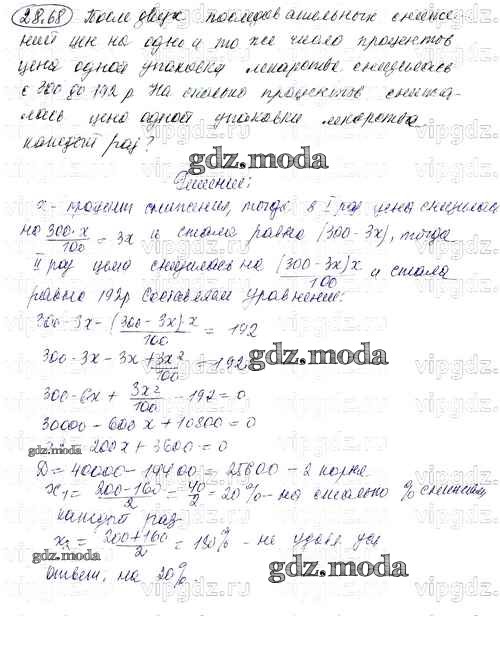 28.68 После двух последовательных сниже-
ний цен на одно и то же число процентов
цена одной упаковки лекарства снизилась
с 300 до 192 р. На сколько процентов снижа-
лась цена одной упаковки лекарства
каждый раз?
gdz.moda
Решение:
x - процент снижения, тогда в I раз цена снизилась
на 300·x/100 = 3x и стала равна (300-3x), тогда
II раз цена снизилась на (300-3x)x/100 и стала
равна 192р Составляем уравнение:
300-3x-(300-3x)·x/100 = 192
300-3x-3x+3x²/100 = 192
gdz.moda
300-6x+3x²/100-192=0
30000-600x+10800=0
-200x+3600=0
gdz.moda
D=40000-14400=25600-2 корня
x₁=200-160/2=40/2=20%-на столько % снижали
каждый раз
x₂=200+160/2=180%-не удовл усл
gdz.moda
gdz.moda
Ответ, на 20%.